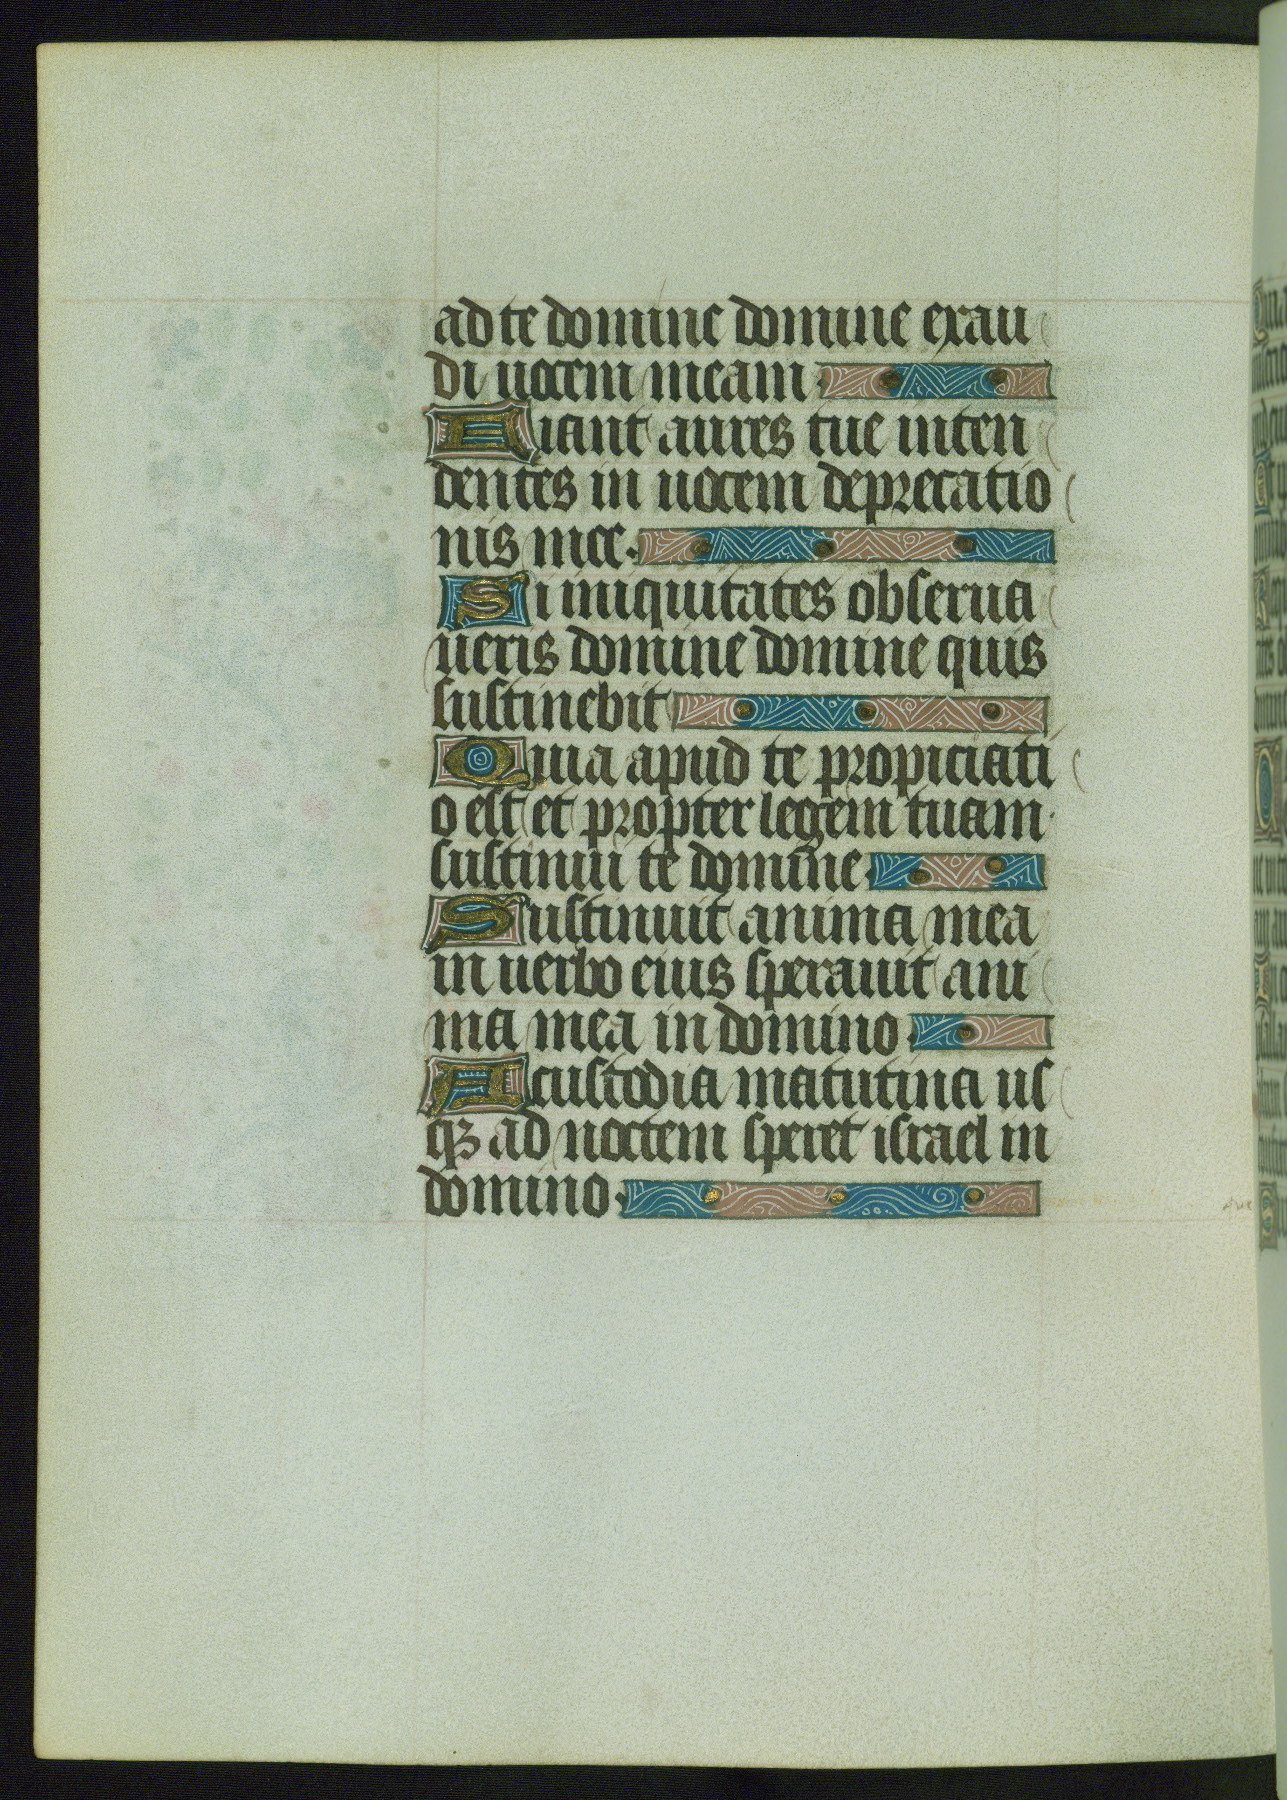 ad te domine domine exau
di uocem meam
Fiant aures tue inten
dentes in uocem deprecatio
nis mee.
Si iniquitates obserua
ueris domine domine quis
sustinebit
Quia apud te propiciati
o est et propter legem tuam
sustinui te domine
Sustinuit anima mea
in uerbo eius sperauit ani
ma mea in domino.
A custodia matutina us
qȝ ad noctem speret israel in
domino.